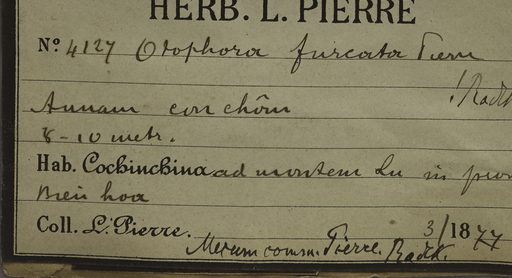 HERB. L. PIERRE
Nº 4127 Otophora furcata Pierre
! Radlk
Annam con chôm
8-10 metr.
Hab. Cochinchina ad montem Lu in prov
Bien hoa
Coll. L. Pierre. 3/1877
Merum comm. Pierre. Radlk.